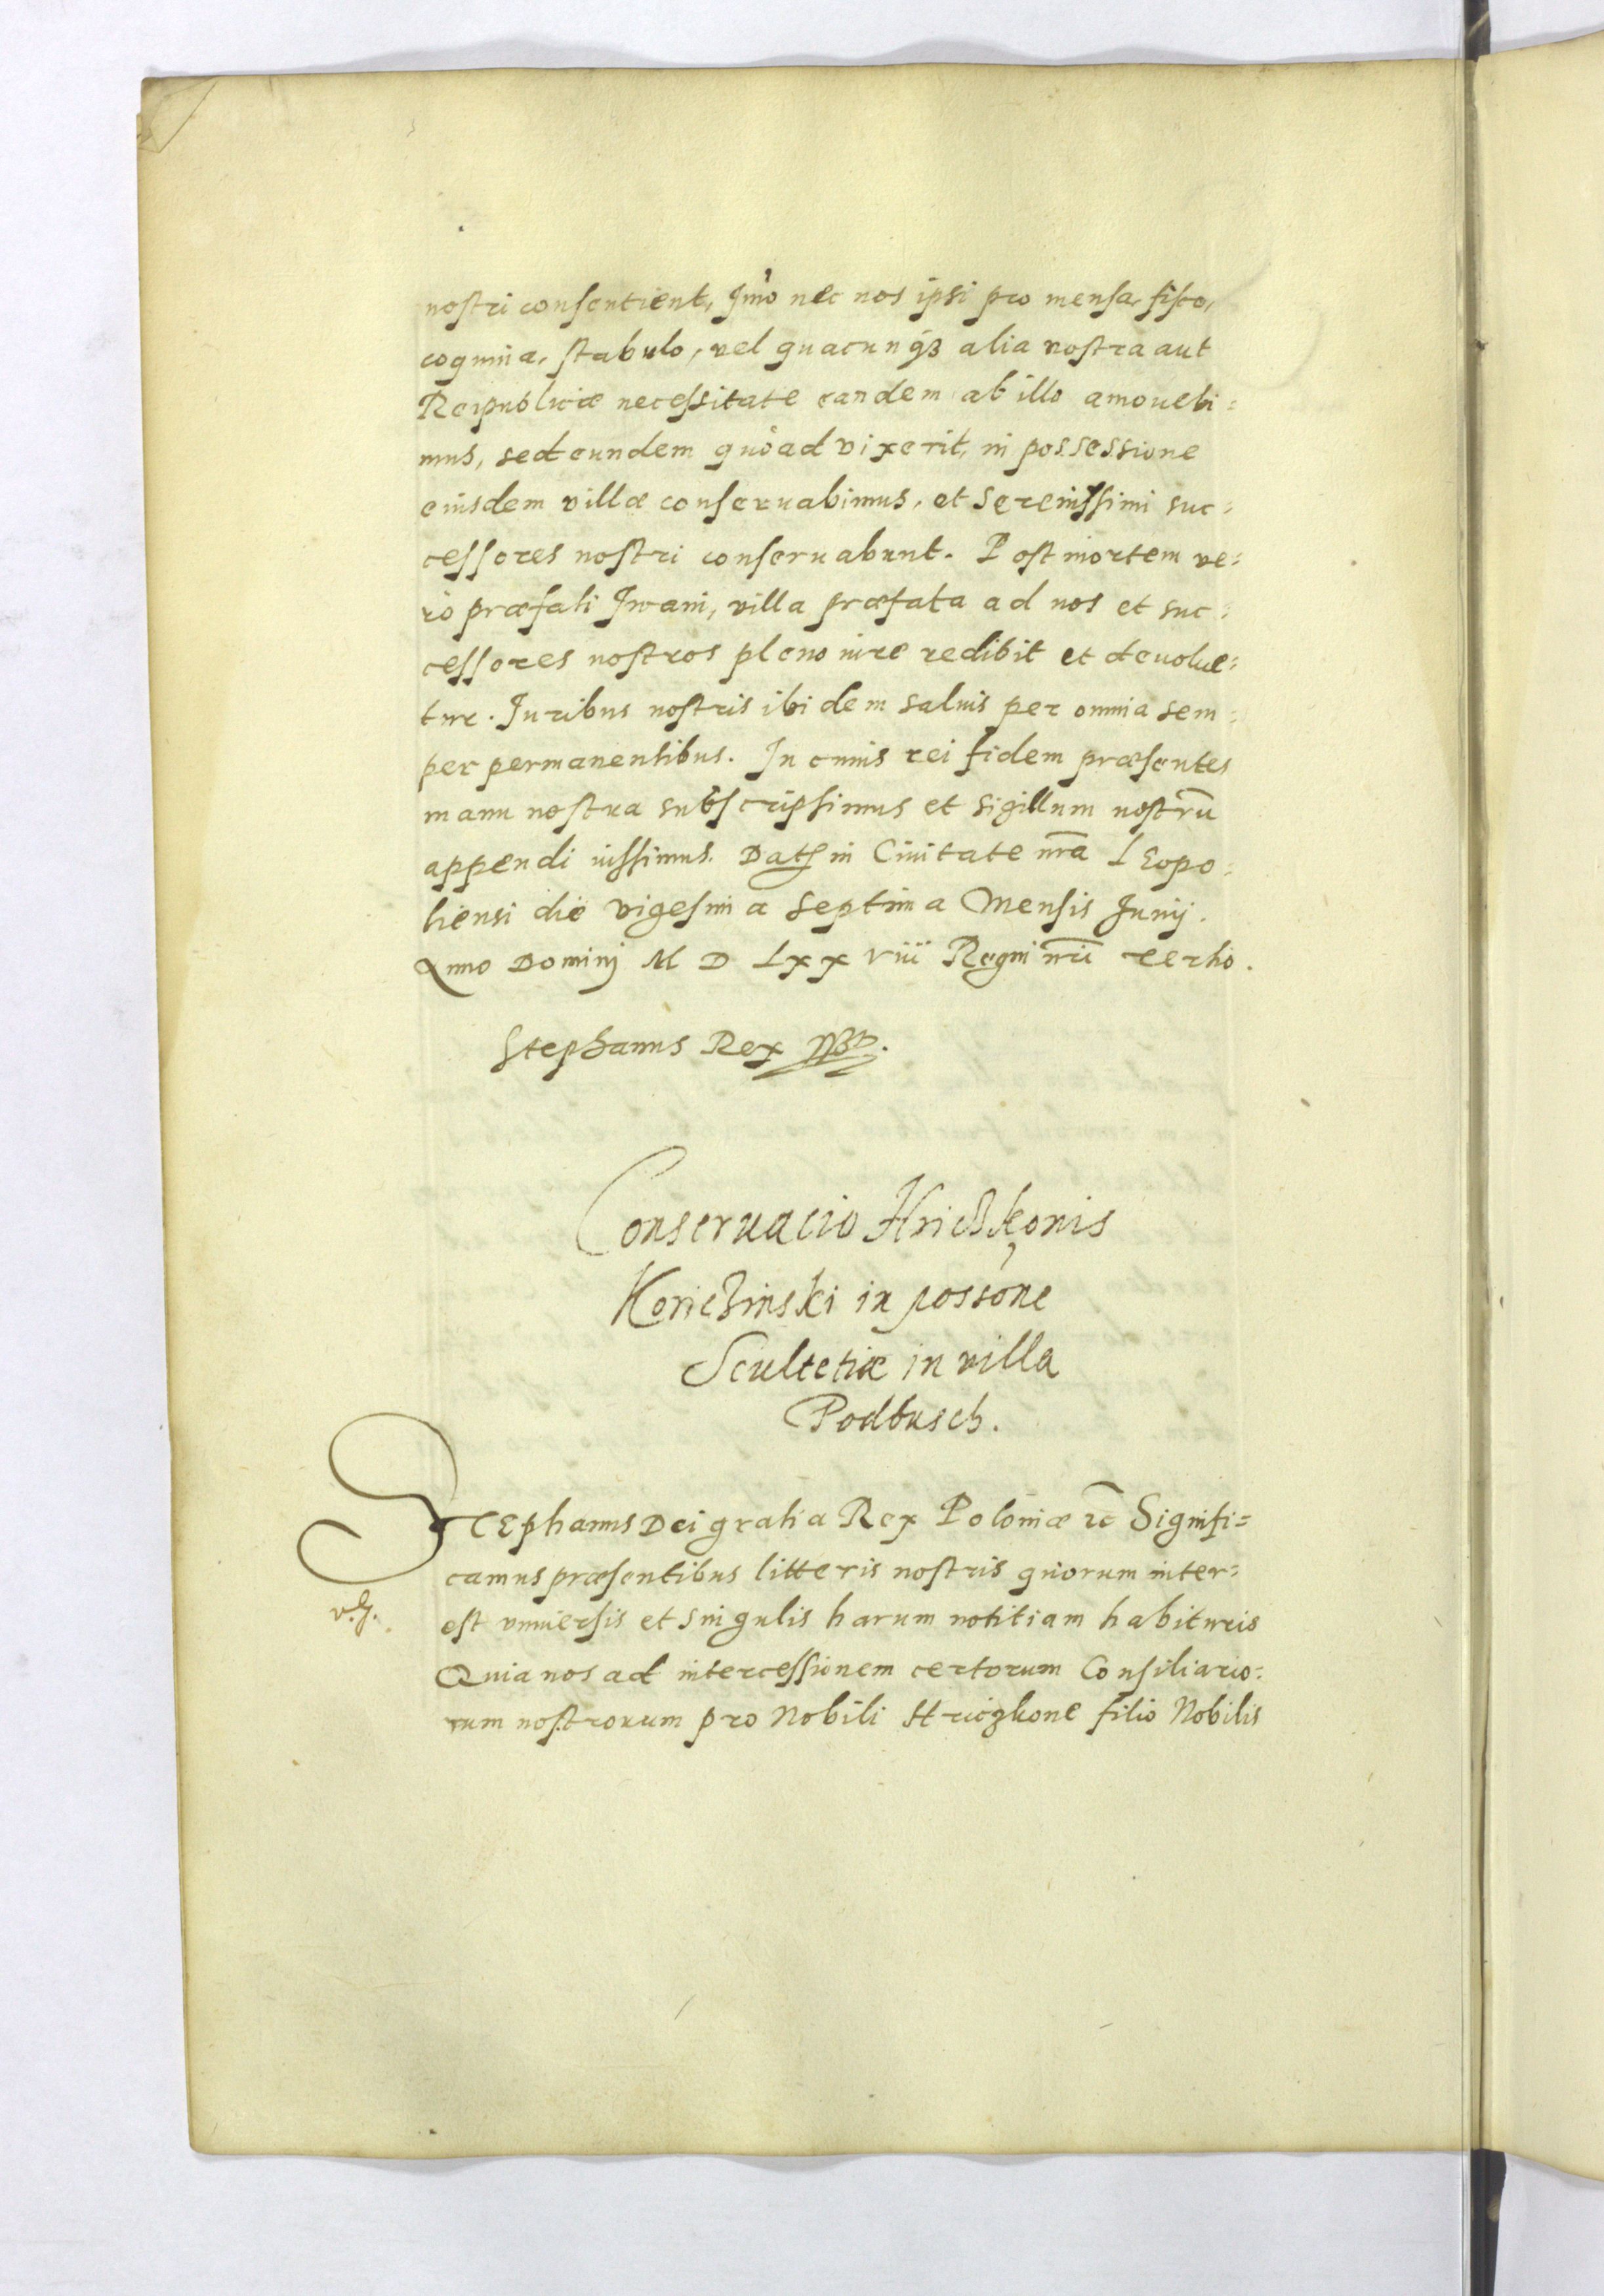 nostri consentient, Imò nec nos ipsi pro mensa, fisco,
coquina, stabulo, vel quacunqȝ alia nostra aut
Reipublicæ necessitate eandem ab illo amouebi=
mus, sed eundem quòad vixerit, in possessione
eiusdem villæ conseruabimus, et Serenissimi suc=
cessores nostri conseruabunt. Post mortem ve=
rò præfati Iwani, villa præfata ad nos et suc=
cessores nostros pleno iure redibit et deuolue=
tur. Iuribus nostris ibidem saluis per omnia sem=
per permanentibus. In cuius rei fidem præsentes
manu nostra subscripsimus et sigillum nostrũ
appendi iussimus. Dat in Ciuitate nr̃a Leopo=
liensi die vigesima septima Mensis Iunij.
Anno Dominj M D Lxx viii Regni nr̃i tertio.
Stephanus Rex
Conseruacio Hriczkonis
Koriczinski in possone
Scultetiæ in villa
Podbusch.
Stephanus Dei gratia Rex Poloniæ &c Signifi=
camus præsentibus litteris nostris quorum inter=
v.g.
est vniuersis et singulis harum notitiam habituris
Quia nos ad intercessionem certorum Consiliario=
rum nostrorum pro Nobili Hriczkone filio Nobilis